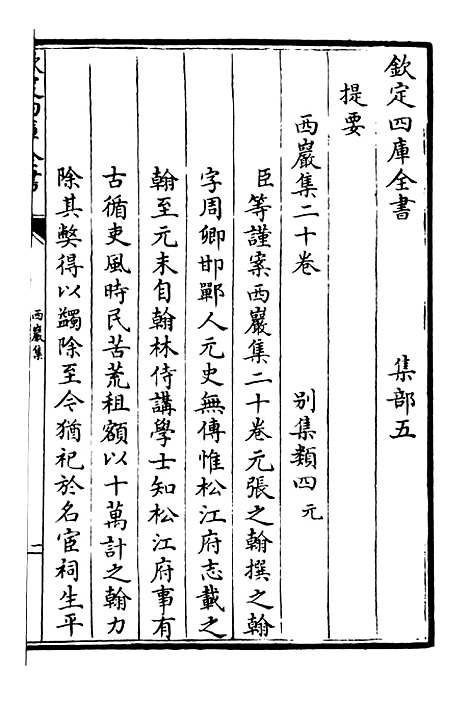 欽定四庫全書　集部五
提要
西巖集二十卷　别集類四 元
臣等謹案西巖集二十卷元張之翰撰之翰
字周卿邯鄲人元史無傳惟松江府志載之
翰至元末自翰林侍講學士知松江府事有
古循吏風時民苦荒租額以十萬計之翰力
除其獘得以蠲除至今猶祀於名宦祠生平
欽定四庫全書
西巖集